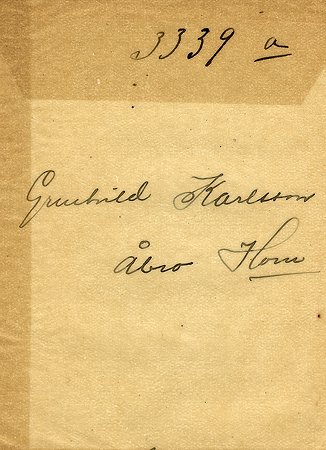 3339 a
Grunhild Karlsson
Åbro Horn